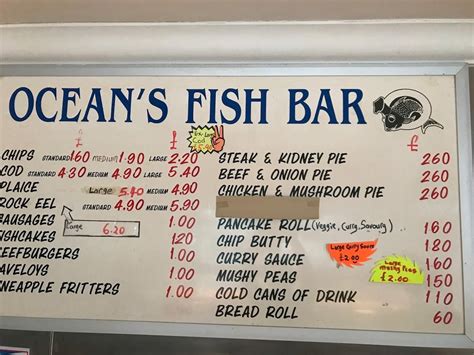 OCEAN'S FISH BAR
£
£
CHIPS STANDARD 160 MEDIUM 1.90 LARGE 2.20
COD STANDARD 4.30 MEDIUM 4.90 LARGE 5.40
PLAICE Large 5.40 MEDIUM 4.90
ROCK EEL STANDARD 4.90 MEDIUM 5.90
Large 6.20
SAUSAGES 1.00
FISHCAKES 120
BEEFBURGERS 1.00
SAVELOYS 1.00
PINEAPPLE FRITTERS 1.00
Large
Cod
STEAK & KIDNEY PIE 260
BEEF & ONION PIE 260
CHICKEN & MUSHROOM PIE 260
PANCAKE ROLL (Veggie, Curry, Savoury) 160
CHIP BUTTY 180
CURRY SAUCE 150
Large Curry Sauce
£2.00
MUSHY PEAS 150
Large
Mushy Peas
£2.00
COLD CANS OF DRINK 110
BREAD ROLL 60